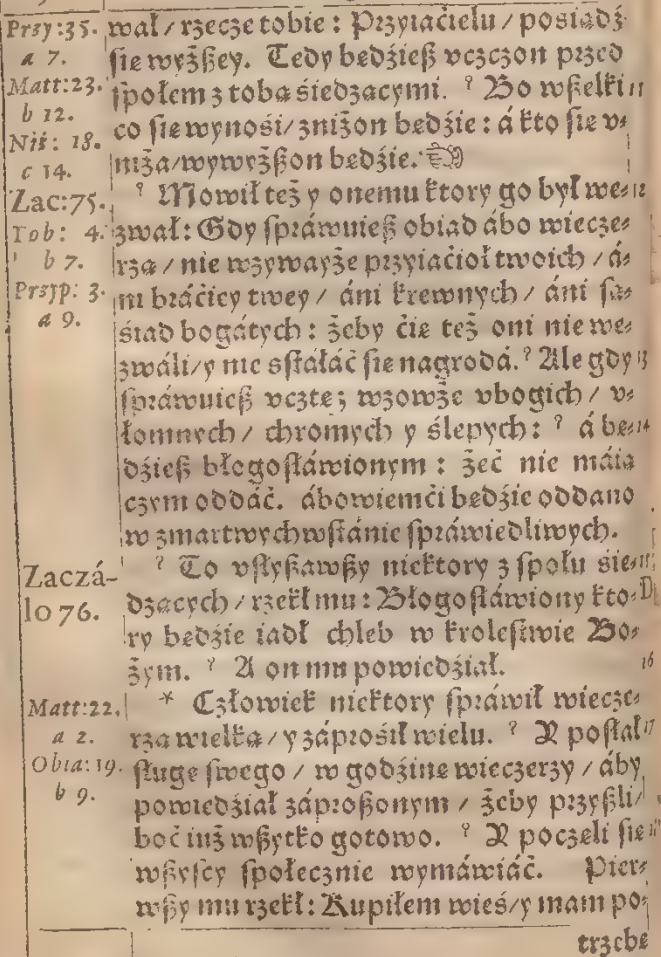 Przy:35.
a 7.
Matt:23.
b 12.
Niż: 18.
c 14.
Zac:75.
Tob: 4.
b 7.
Przyp: 3.
a 9.
Zaczá-
lo 76.
Matt:22.
a 2.
Obia:19.
b 9.
wał / rzecze tobie : Przyiaćielu / pośiądź
ſie wyżßey. Tedy będźieß vczczon przed
ſpołem z tobą śiedzącymi. Bo wßelki 11
co ſie wynośi / zniżon będźie : á kto ſie v⸗
niża / wywyżßon będźie.
Mowił też y onemu ktory go był we⸗ 12
zwał : Gdy ſpráwuieß obiad ábo wiecze⸗
rza / nie wzywayże przyiaćioł twoich / á⸗
ni bráćiey twey / áni krewnych / áni ſą⸗
śiad bogátych : żeby ćie też oni nie we⸗
zwáli / y nie sſtáłáć ſie nagrodá. Ale gdy 13
ſpráwuieß vcztę ; wzowże vbogich / v⸗
łomnych / chromych y ślepych : á bę⸗ 14
dźieß błogoſłáwionym : żeć nie máią
czym oddáć. ábowiemći będźie oddano
w zmartwychwſtánie ſpráwiedliwych.
To vſłyßawßy niektory z ſpołu śie⸗ 15
dzących / rzekł mu : Błogoſłáwiony kto⸗ D
ry będźie iadł chleb w kroleſtwie Bo⸗
żym. A on mu powiedźiał. 16
* Człowiek niektory ſpráwił wiecze⸗
rzą wielką / y záprośił wielu. Y poſłał 17
ſługę ſwego / w godźinę wieczerzy / áby
powiedźiał záproßonym / żeby przyßli /
boć iuż wßytko gotowo. Y poczęli ſie 18
wßyſcy ſpołecznie wymáwiáć. Pier⸗
wßy mu rzekł : Kupiłem wieś / y mam po⸗
trzebę